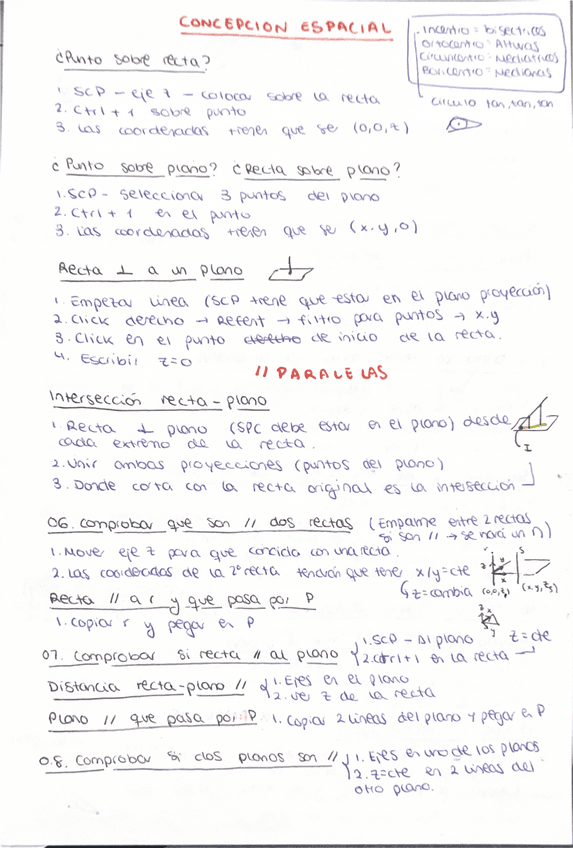 CONCEPCION ESPACIAL
Incentro = bisectrices
Ortocentro = Alturas
Circuncentro = Mediatrices
Baricentro = Medianas
circulo tan, tan, tan
¿Punto sobre recta?
1. SCP - eje z - colocar sobre la recta
2. Ctrl + 1 sobre punto
3. Las coordenadas tienen que se (0,0,z)
¿Punto sobre plano? ¿Recta sobre plano?
1. SCP - Selecciona 3 puntos del plano
2. Ctrl + 1 en el punto
3. Las coordenadas tienen que se (x,y,0)
Recta ⊥ a un plano
1. Empezar linea (SCP tiene que estar en el plano proyección)
2. Click derecho → Refent → filtro para puntos → x.y
3. Click en el punto derecho de inicio de la recta.
4. Escribir z=0
// PARALELAS
Intersección recta-plano
1. Recta ⊥ plano (SPC debe estar en el plano) desde
cada extremo de la recta.
I
2. Unir ambas proyecciones (puntos del plano)
3. Donde corta con la recta original es la intersección
06. Comprobar que son // dos rectas (Empalme entre 2 rectas
si son // → se hará un ∩)
1. Mover eje z para que coincida con una recta.
2. Las coordecadas de la 2ª recta tendrán que tene x/y=cte
z=cambia
(0,0,z₁) (x,y,z₂)
Recta // a r y que pasa por P
1. Copiar r y pegar en P
07. Comprobar si recta // al plano
1. SCP - al plano z=cte
2. ctrl+1 en la recta
Distancia recta-plano //
1. Ejes en el plano
2. ver z de la recta
Plano // que pasa por P 1. Copiar 2 lineas del plano y pegar en P
0.8. Comprobar si dos planos son //
1. Ejes en uno de los planos
2. z=cte en 2 lineas del
otro plano.